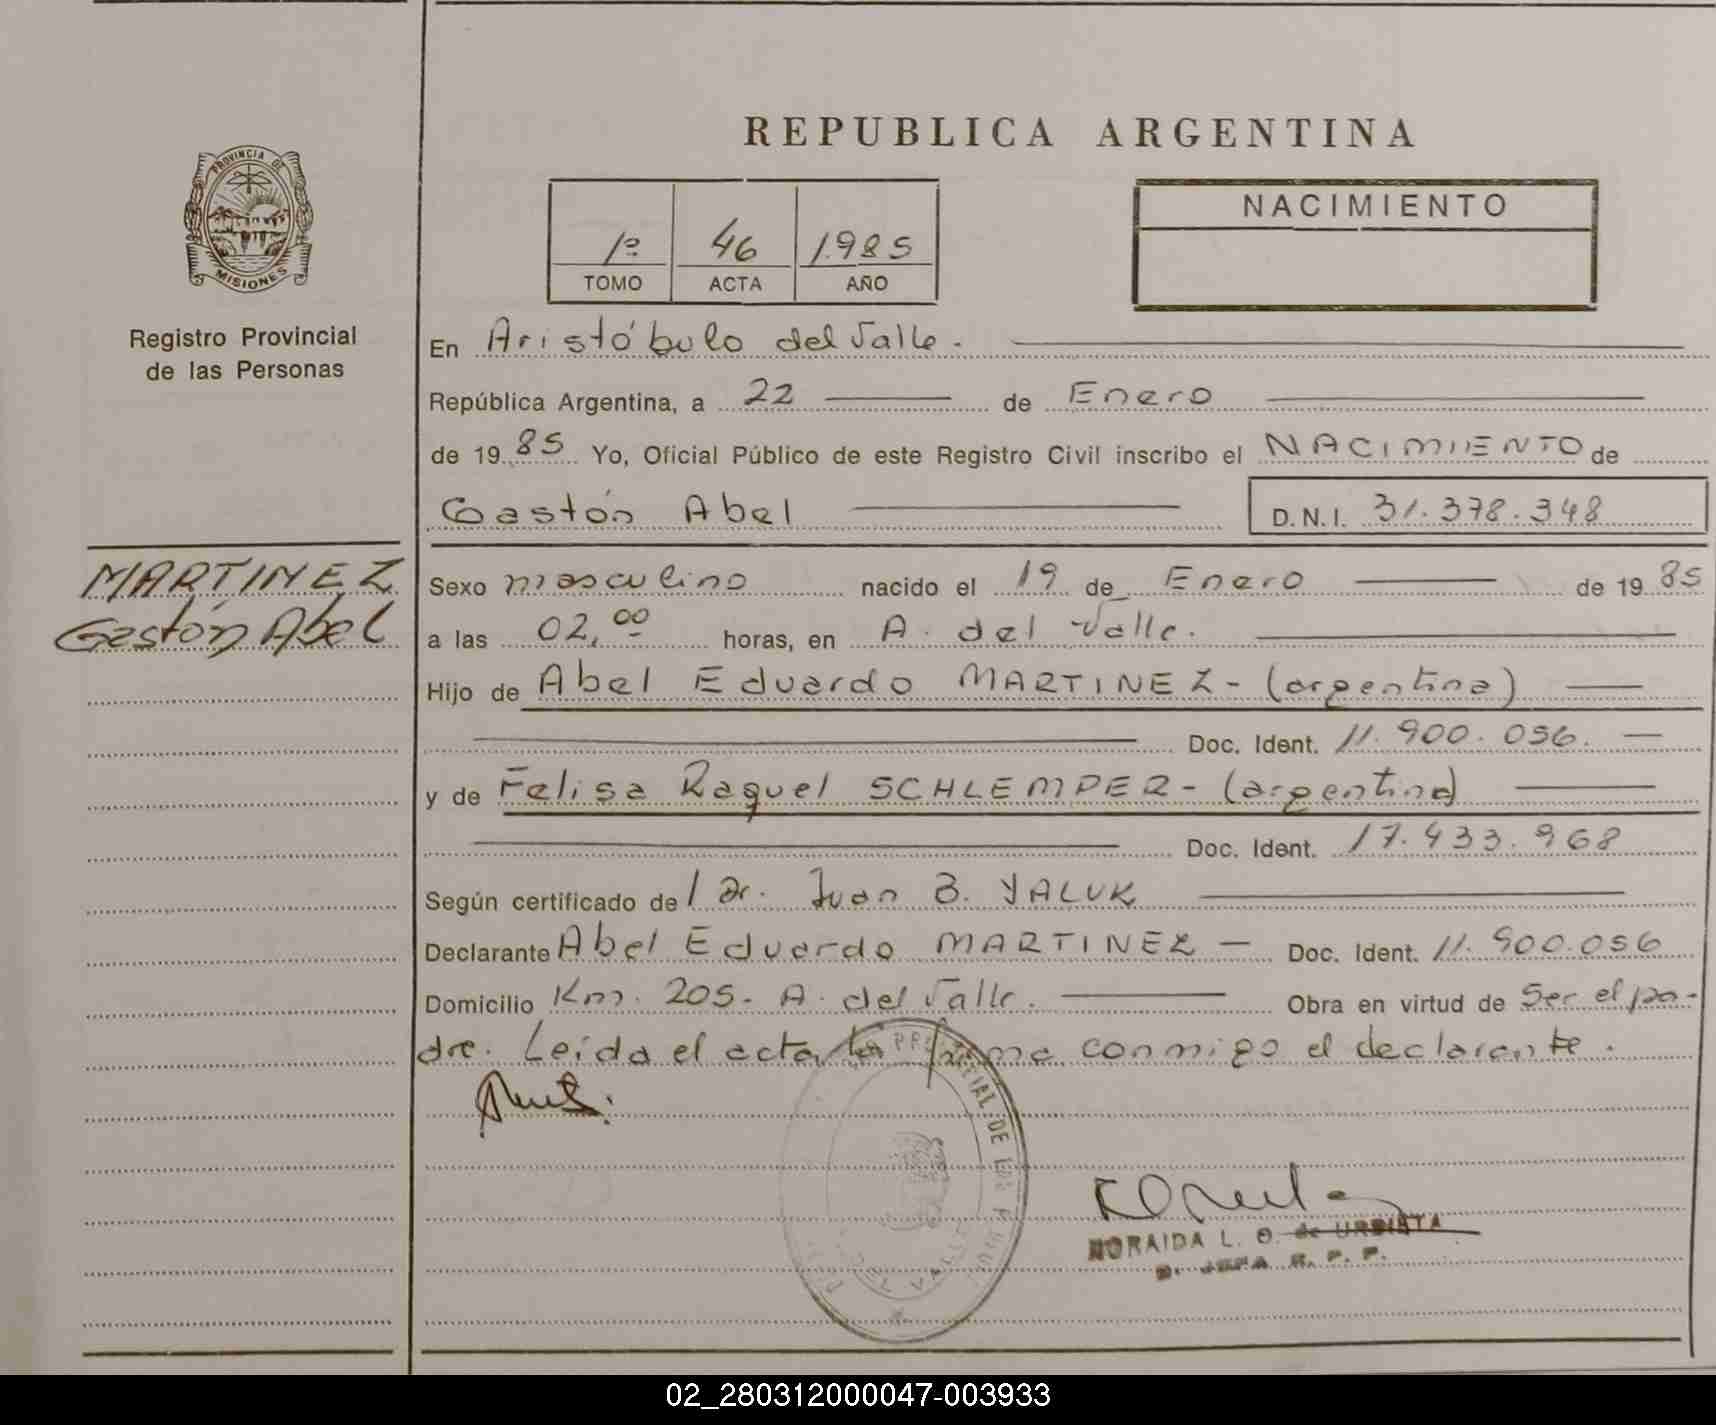 REPUBLICA ARGENTINA
PROVINCIA DE
MISIONES
Registro Provincial
de las Personas
1º 46 1.985
TOMO ACTA AÑO
NACIMIENTO
En Aristóbulo del Valle.
República Argentina, a 22 de Enero
de 19 85 Yo, Oficial Público de este Registro Civil inscribo el NACIMIENTO de
Gastón Abel D.N.I. 31.378.348
MARTINEZ
Gastón Abel
Sexo masculino nacido el 19 de Enero de 19 85
a las 02,00 horas, en A. del Valle.
Hijo de Abel Eduardo MARTINEZ - (argentina)
Doc. Ident. 11.900.056.
y de Felisa Raquel SCHLEMPER - (argentina)
Doc. Ident. 17.433.968
Según certificado de / Dr. Juan B. YALUK
Declarante Abel Eduardo MARTINEZ - Doc. Ident. 11.900.056
Domicilio Km. 205 - A. del Valle. Obra en virtud de Ser el pa-
dre. Leída el acta la firma conmigo el declarante.
PROVINCIAL DE
DEL VALLE
NORAIDA L. O. de URDIETA
JEFA R. P. P.
02_280312000047-003933